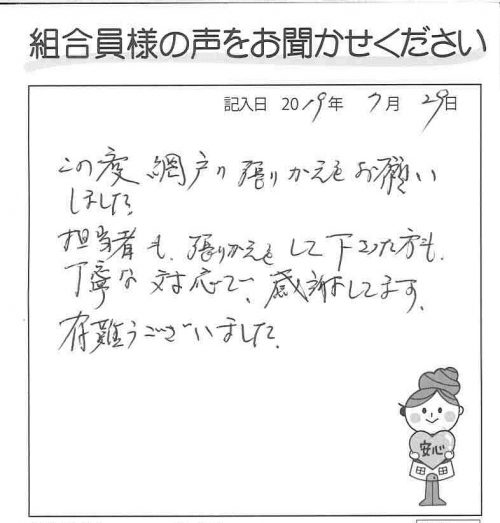 組合員様の声をお聞かせください
記入日 2019年 7月 29日
この度 網戸の張りかえをお願い
しました
担当者も、張りかえをして下さった方も、
丁寧な対応で、感謝してます。
有難うございました。
安心